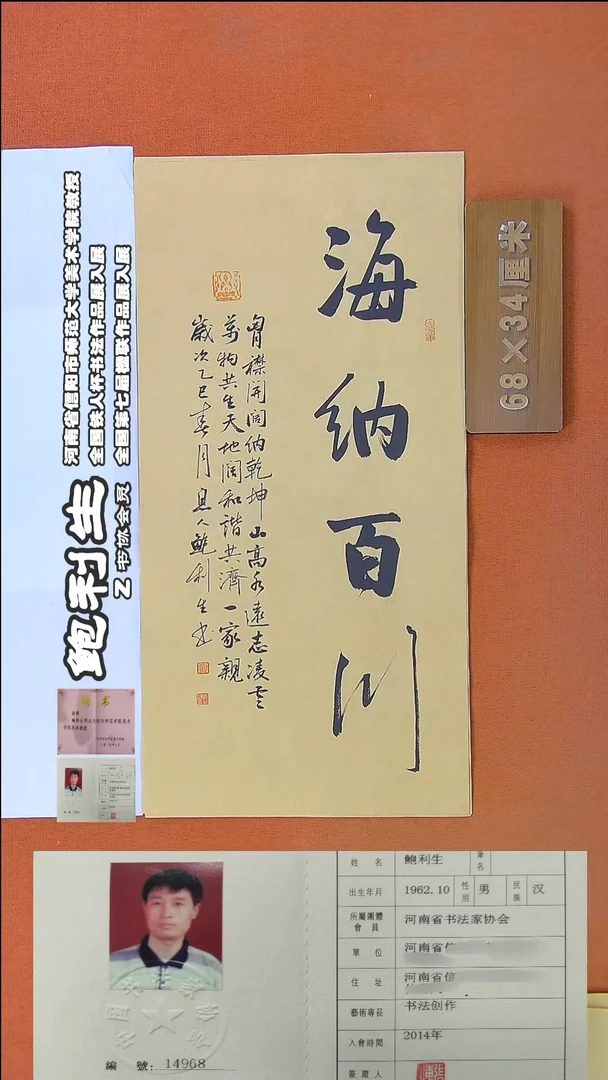 海纳百川
胸襟開闊納乾坤山高水遠志凌雲
萬物共生天地闊和諧共濟一家親
歲次乙巳春月息人鮑利生书
68×34厘米
河南省信阳市 范大学美术学院教授
全国农人杯书法作品展入展
全国第七届楹联作品展入展
鲍利生
Z书协会员
姓 名 鲍利生 筆名
出生年月 1962.10 性别 男 民族 汉
所屬團體會員 河南省书法家协会
單 位 河南省信
住 址 河南省信
藝術專長 书法创作
入會時間 2014年
簽證人
編 號: 14968